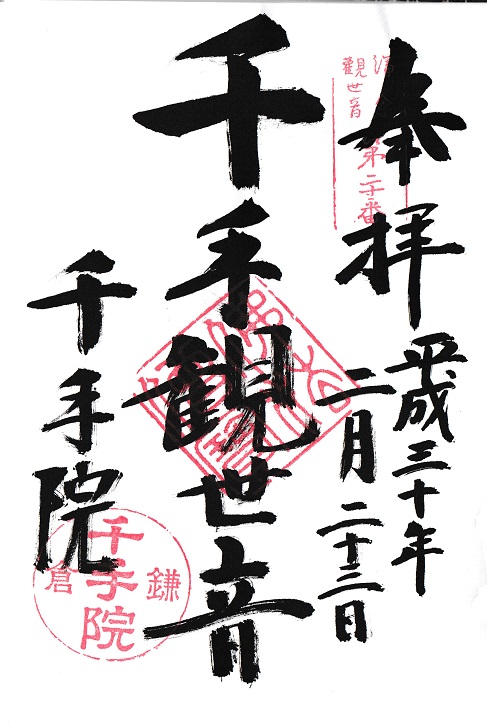 奉拝
平成三十年
二月二十三日
觀世音
第二十番
千手観世音
千手院
鎌倉
千手院